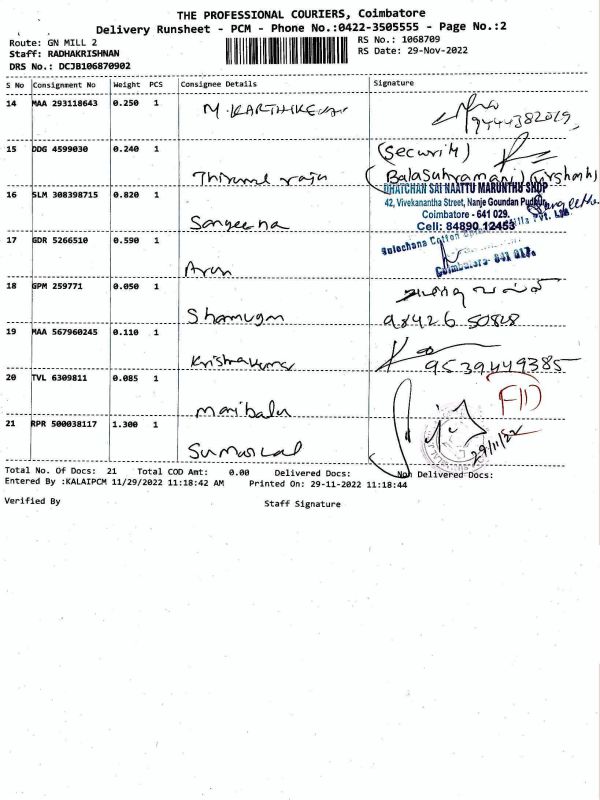 THE PROFESSIONAL COURIERS, Coimbatore
Delivery Runsheet - PCM - Phone No.:0422-3505555 - Page No.:2
Route: GN MILL 2
RS No.: 1068709
Staff: RADHAKRISHNAN
RS Date: 29-Nov-2022
DRS No.: DCJB106870902
S No Consignment No Weight PCS Consignee Details Signature
14 MAA 293118643 0.250 1 M. KARTHIKEYAN
9444382019
15 DDG 4599030 0.240 1 (Security)
Thirumal raju (Balasubramani)
DHATCHAN SAI NAATTU MARUNTHU SHOP
16 SLM 308398715 0.820 1 42, Vivekanantha Street, Nanje Goundan Pudhur,
Coimbatore - 641 029. Sangeetha
Sangeetha Cell: 84890 12453
17 GDR 5266510 0.590 1 Sulochana Cotton Mills Pvt. Ltd.
Arun Coimbatore- 641
18 GPM 259771 0.050 1
Shanmugam 98426 50828
19 MAA 567960245 0.110 1
Krishnakumar 9539449385
20 TVL 6309811 0.085 1
Maribalu
21 RPR 500038117 1.300 1
Sumanlal 29/11/22
Total No. Of Docs: 21 Total COD Amt: 0.00 Delivered Docs: Non Delivered Docs:
Entered By :KALAIPCM 11/29/2022 11:18:42 AM Printed On: 29-11-2022 11:18:44
Verified By Staff Signature